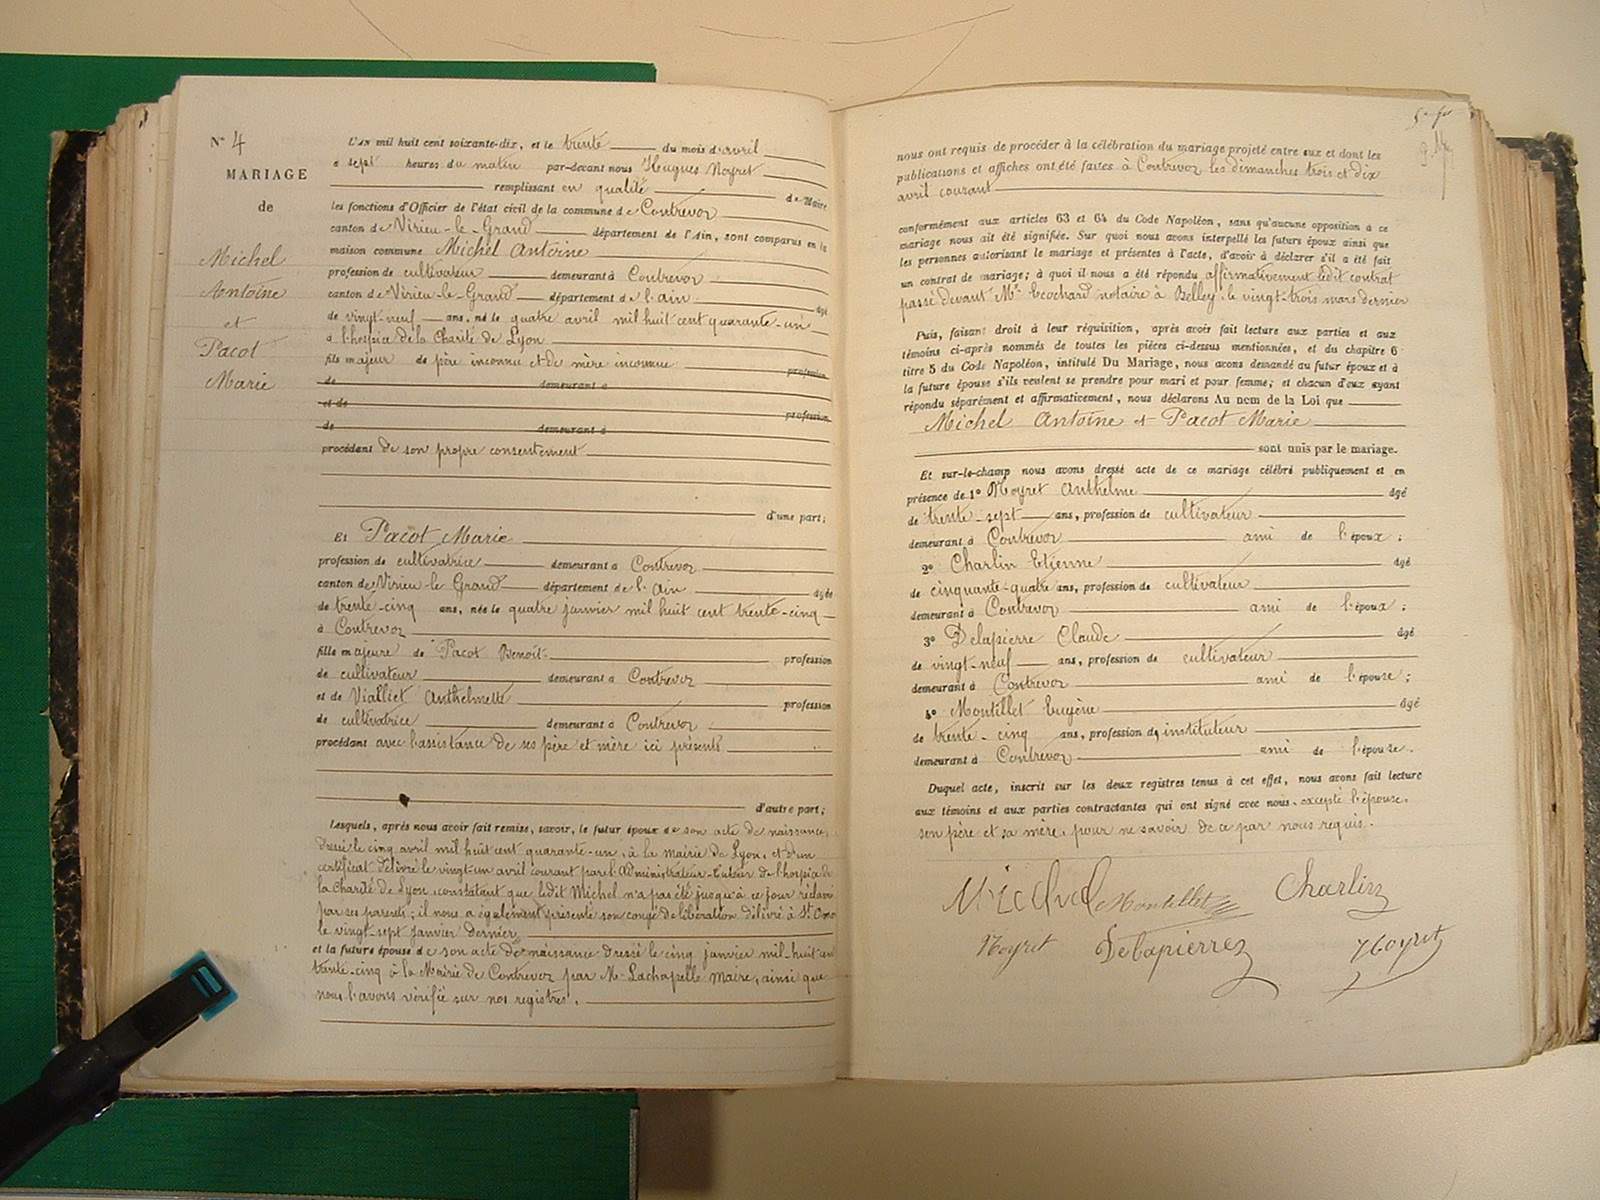 N° 4
MARIAGE
de
Michel
Antoine
et
Pacot
Marie
L'An mil huit cent soixante-dix, et le trente du mois d'avril
à sept heures du matin par-devant nous Hugues Noyret
remplissant en qualité de Maire
les fonctions d'Officier de l'état civil de la commune de Contrevoz
canton de Virieu-le-Grand département de l'Ain, sont comparus en la
maison commune Michel Antoine
profession de cultivateur demeurant à Contrevoz
canton de Virieu-le-Grand département de l'ain âgé
de vingt-neuf ans, né le quatre avril mil huit cent quarante-un
à l'hospice de la Charité de Lyon
fils majeur de père inconnu et de mère inconnue profession
de demeurant à
et de profession
de demeurant à
procédant de son propre consentement
d'une part;
Et Pacot Marie
profession de cultivatrice demeurant à Contrevoz
canton de Virieu-le Grand département de l'Ain âgée
de trente-cinq ans, née le quatre janvier mil huit cent trente-cinq
à Contrevoz
fille majeure de Pacot Benoît profession
de cultivateur demeurant à Contrevoz
et de Vialliet Anthelmette profession
de cultivatrice demeurant à Contrevoz
procédant avec l'assistance de ses père et mère ici présents
d'autre part;
Lesquels, après nous avoir fait remise, savoir, le futur époux de son acte de naissance,
dressé le cinq avril mil huit cent quarante-un, à la mairie de Lyon, et d'un
certificat délivré le vingt-un avril courant par l'Administrateur-tuteur de l'hospice de
la Charité de Lyon constatant que ledit Michel n'a pas été jusqu'à ce jour réclamé
par ses parents; il nous a également présenté son congé de libération délivré à St Omer
le vingt-sept janvier dernier
et la future épouse de son acte de naissance dressé le cinq janvier mil-huit cent
trente-cinq à la Mairie de Contrevoz par Mr Lachapelle Maire, ainsi que
nous l'avons vérifié sur nos registres.
nous ont requis de procéder à la célébration du mariage projeté entre eux et dont les
publications et affiches ont été faites à Contrevoz les dimanches trois et dix
avril courant
conformément aux articles 63 et 64 du Code Napoléon, sans qu'aucune opposition à ce
mariage nous ait été signifiée. Sur quoi nous avons interpellé les futurs époux ainsi que
les personnes autorisant le mariage et présentes à l'acte, d'avoir à déclarer s'il a été fait
un contrat de mariage; à quoi il nous a été répondu affirmativement ledit contrat
passé devant Me Cochard notaire à Belley le vingt-trois mars dernier
Puis, faisant droit à leur réquisition, après avoir fait lecture aux parties et aux
témoins ci-après nommés de toutes les pièces ci-dessus mentionnées, et du chapitre 6
titre 5 du Code Napoléon, intitulé Du Mariage, nous avons demandé au futur époux et à
la future épouse s'ils veulent se prendre pour mari et pour femme; et chacun d'eux ayant
répondu séparément et affirmativement, nous déclarons Au nom de la Loi que
Michel Antoine et Pacot Marie
sont unis par le mariage.
Et sur-le-champ nous avons dressé acte de ce mariage célébré publiquement et en
présence de 1° Noyret Anthelme âgé
de trente-sept ans, profession de cultivateur
demeurant à Contrevoz ami de l'époux;
2° Charlin Etienne âgé
de cinquante-quatre ans, profession de cultivateur
demeurant à Contrevoz ami de l'époux;
3° Delapierre Claude âgé
de vingt-neuf ans, profession de cultivateur
demeurant à Contrevoz ami de l'épouse;
4° Montillet Eugène âgé
de trente-cinq ans, profession d'instituteur
demeurant à Contrevoz ami de l'épouse.
Duquel acte, inscrit sur les deux registres tenus à cet effet, nous avons fait lecture
aux témoins et aux parties contractantes qui ont signé avec nous. excepté l'épouse,
son père et sa mère, pour ne savoir de ce par nous requis.
Michel Montillet Charlin
Noyret Delapierre Noyret